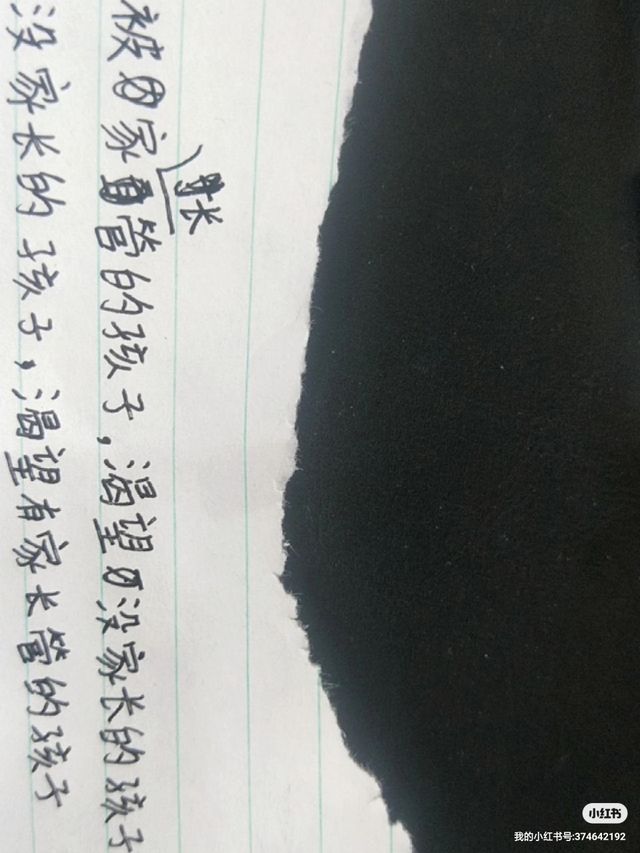 被家长管的孩子，渴望没家长的孩子
没家长的孩子，渴望有家长管的孩子
小红书
我的小红书号:374642192